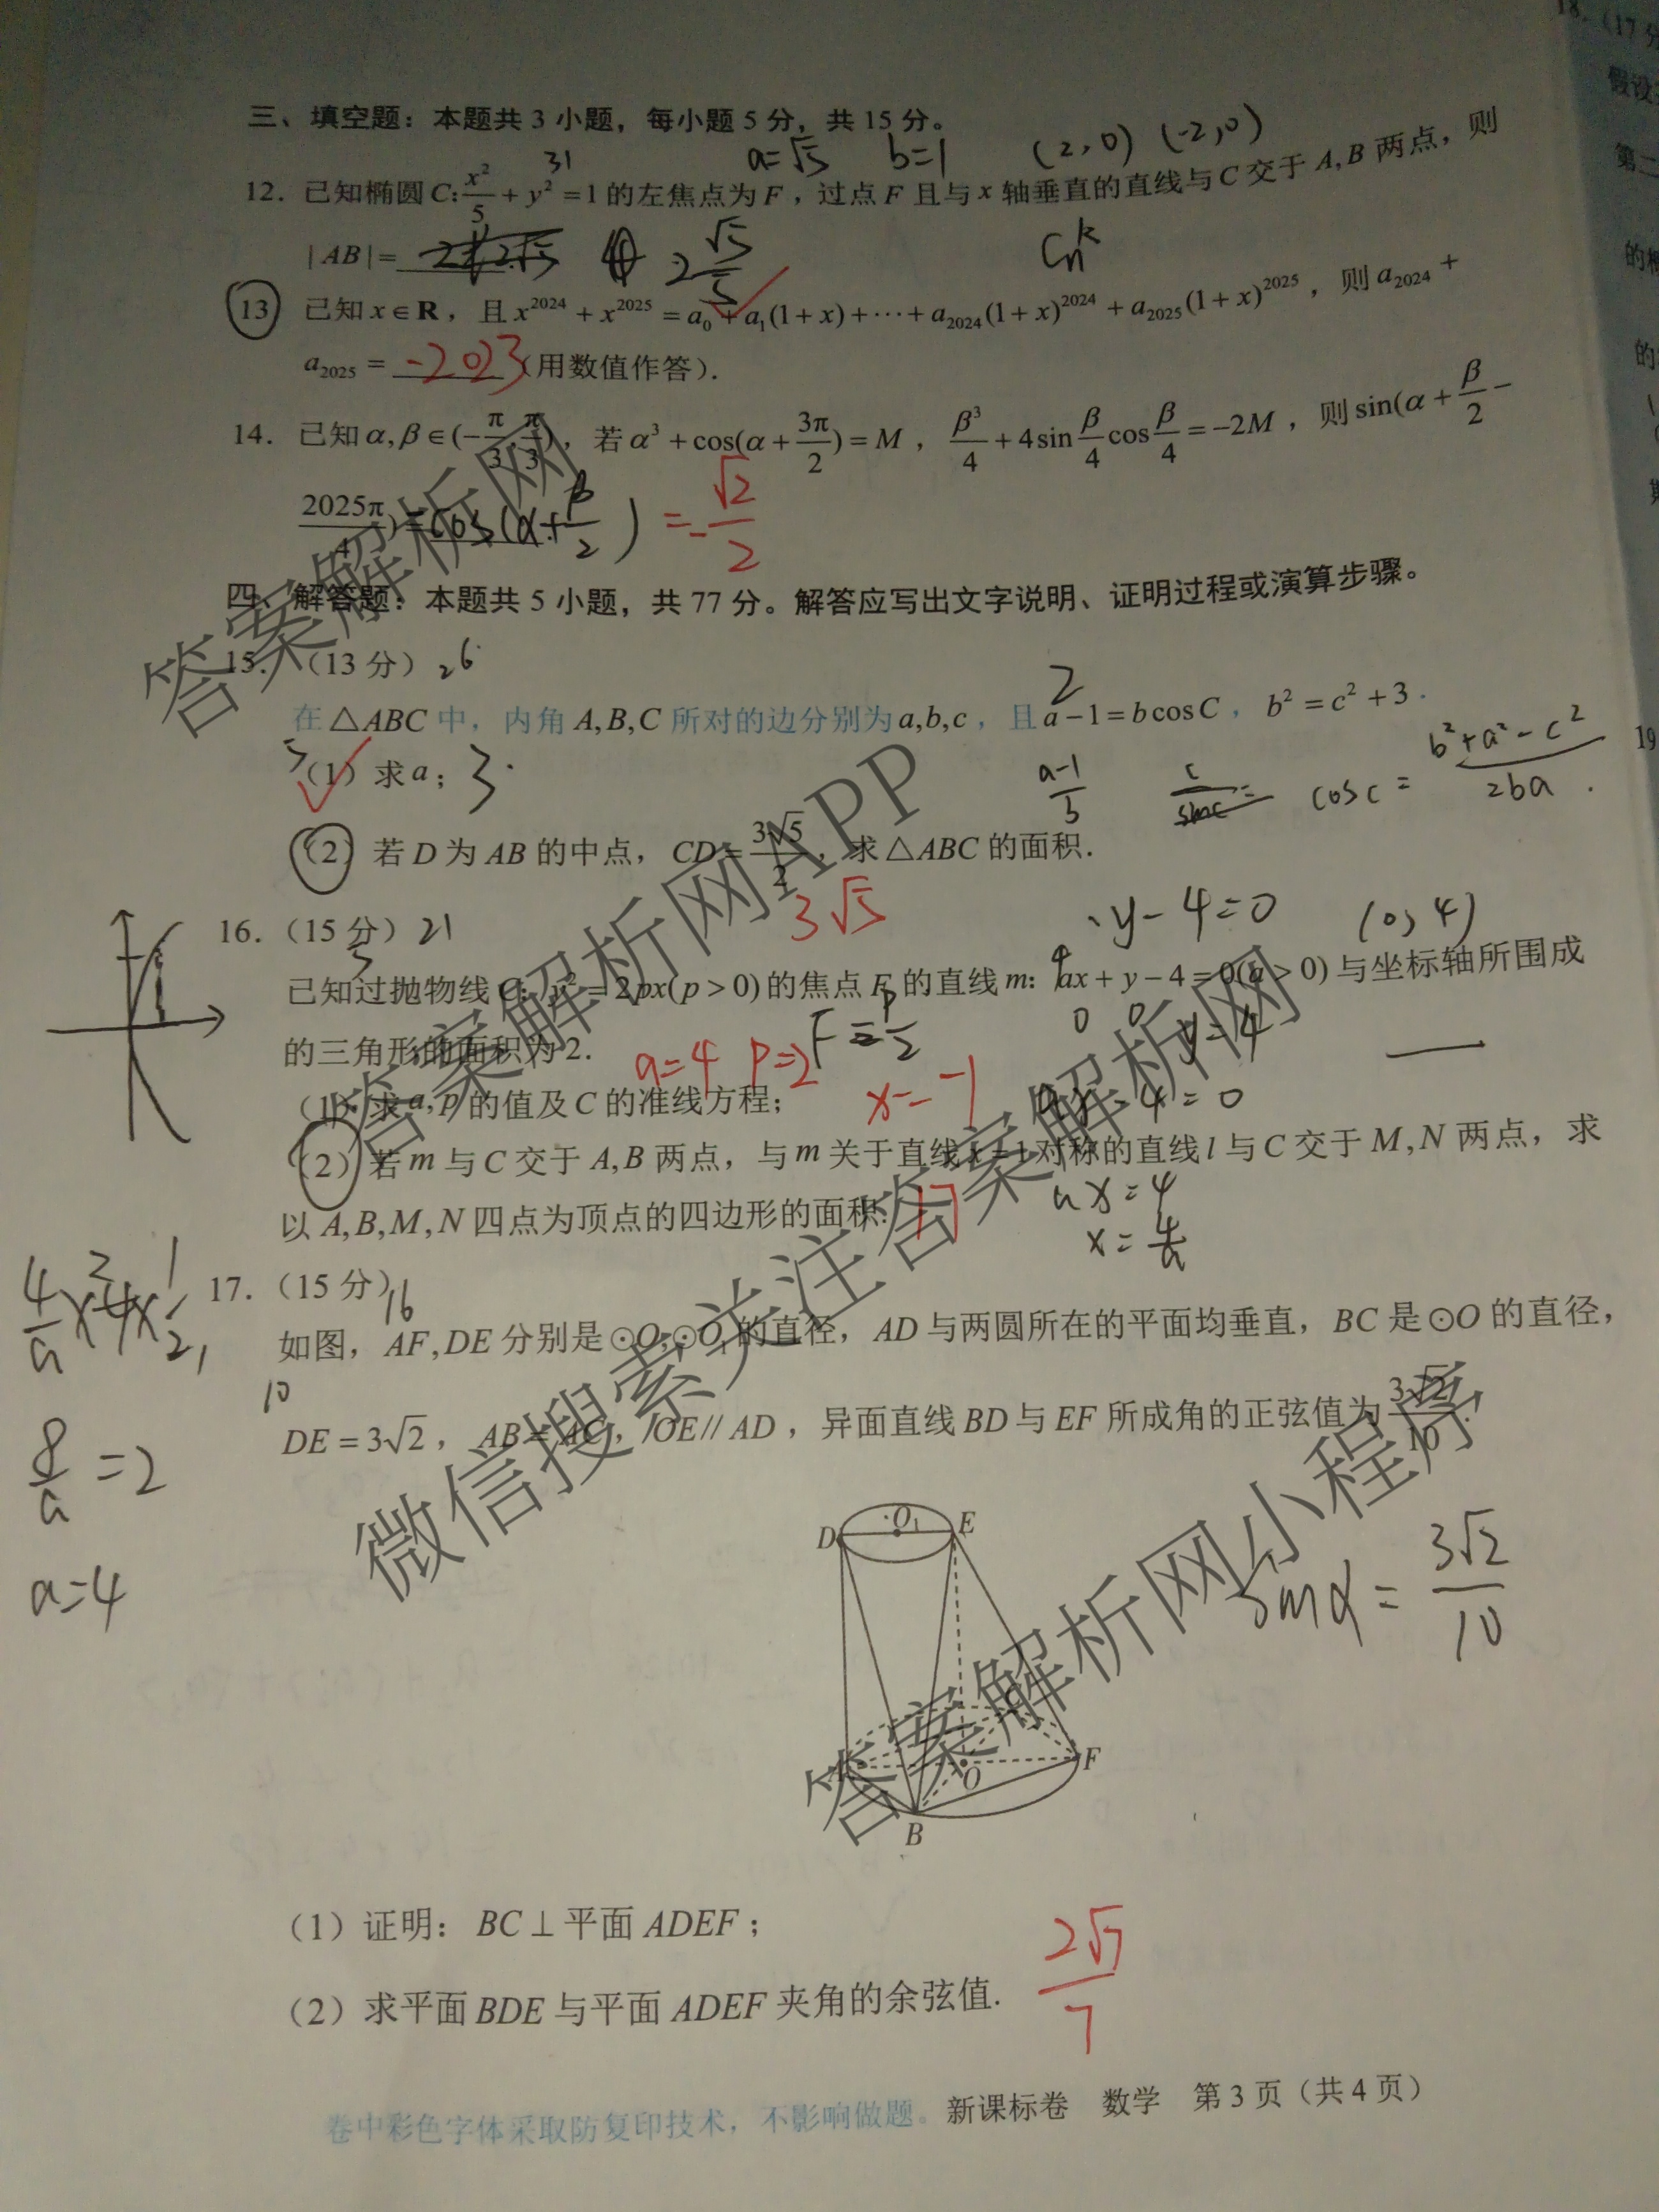 三、填空题：本题共 3 小题，每小题 5 分，共 15 分。
a=√5 b=1 (2,0) (-2,0)
31
12. 已知椭圆 C: x²/5 + y² = 1 的左焦点为 F，过点 F 且与 x 轴垂直的直线与 C 交于 A, B 两点，则
|AB| = 2√5/5
Cₙᵏ
13 已知 x∈R，且 x²⁰²⁴ + x²⁰²⁵ = a₀ + a₁(1+x) + ⋯ + a₂₀₂₄(1+x)²⁰²⁴ + a₂₀₂₅(1+x)²⁰²⁵，则 a₂₀₂₄ +
a₂₀₂₅ = -2023 (用数值作答).
14. 已知 α, β∈(-π/3, π/3)，若 α³ + cos(α + 3π/2) = M，β³/4 + 4sin β/4 cos β/4 = -2M，则 sin(α + β/2 -
2025π/4) = cos(α+β/2) = -√2/2
四、解答题：本题共 5 小题，共 77 分。解答应写出文字说明、证明过程或演算步骤。
15. (13 分) 26
2
在 △ABC 中，内角 A, B, C 所对的边分别为 a, b, c，且 a-1 = b cos C，b² = c² + 3.
5 (1) 求 a； 3.
a-1/b c/sinc = cosc = b²+a²-c²/2ba .
(2) 若 D 为 AB 的中点，CD = 3√5/2，求 △ABC 的面积.
3√5
16. (15 分) 21
y-4=0 (0,4)
5
已知过抛物线 C: y² = 2px(p > 0) 的焦点 F 的直线 m: ax + y - 4 = 0(a > 0) 与坐标轴所围成
的三角形的面积为 2.
F=p/2 0 0 y=4
a=4 p=2 x=-1
(1) 求 a, p 的值及 C 的准线方程；
(2) 若 m 与 C 交于 A, B 两点，与 m 关于直线 x = 1 对称的直线 l 与 C 交于 M, N 两点，求
以 A, B, M, N 四点为顶点的四边形的面积. 17
ax=4
x=4/a
17. (15 分) 16
如图，AF, DE 分别是 ⊙O, ⊙O₁ 的直径，AD 与两圆所在的平面均垂直，BC 是 ⊙O 的直径，
10
DE = 3√2，AB = AC，OE // AD，异面直线 BD 与 EF 所成角的正弦值为 3√2/10.
8/a =2
a=4
D O₁ E
sinα = 3√2/10
O F
B
(1) 证明：BC⊥平面 ADEF；
(2) 求平面 BDE 与平面 ADEF 夹角的余弦值.
2√7/7
卷中彩色字体采取防复印技术，不影响做题。新课标卷 数学 第 3 页（共 4 页）
答案解析网
微信搜索关注答案解析网
答案解析网APP
答案解析网小程序
18. (17 分
假设
第二
的
的
19